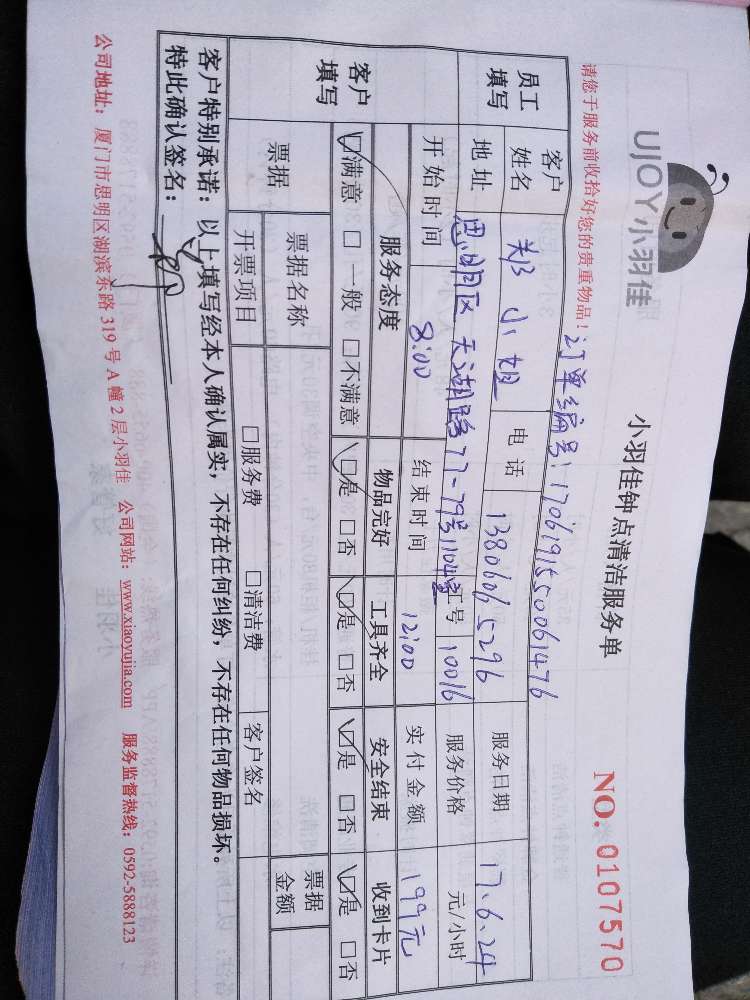 UJOY小羽佳
小羽佳钟点清洁服务单
NO. 0107570
请您于服务前收拾好您的贵重物品!
订单编号:1706191550061476
员工填写
客户姓名 郑小姐 电话 13806065296 服务日期 17.6.24
地址 思明区天湖路77-79号1104室 工号 10016 服务价格 元/小时
开始时间 8:00 结束时间 12:00 实付金额 199元
客户填写
服务态度 物品完好 工具齐全 安全结束 收到卡片
☑满意 □一般 □不满意 ☑是 □否 ☑是 □否 ☑是 □否 ☑是 □否
票据 票据名称 票据金额
开票项目 □服务费 □清洁费 客户签名
客户特别承诺:以上填写经本人确认属实,不存在任何纠纷,不存在任何物品损坏。
特此确认签名:
公司地址:厦门市思明区湖滨东路319号A幢2层小羽佳 公司网站:www.xiaoyujia.com 服务监督热线:0592-5888123